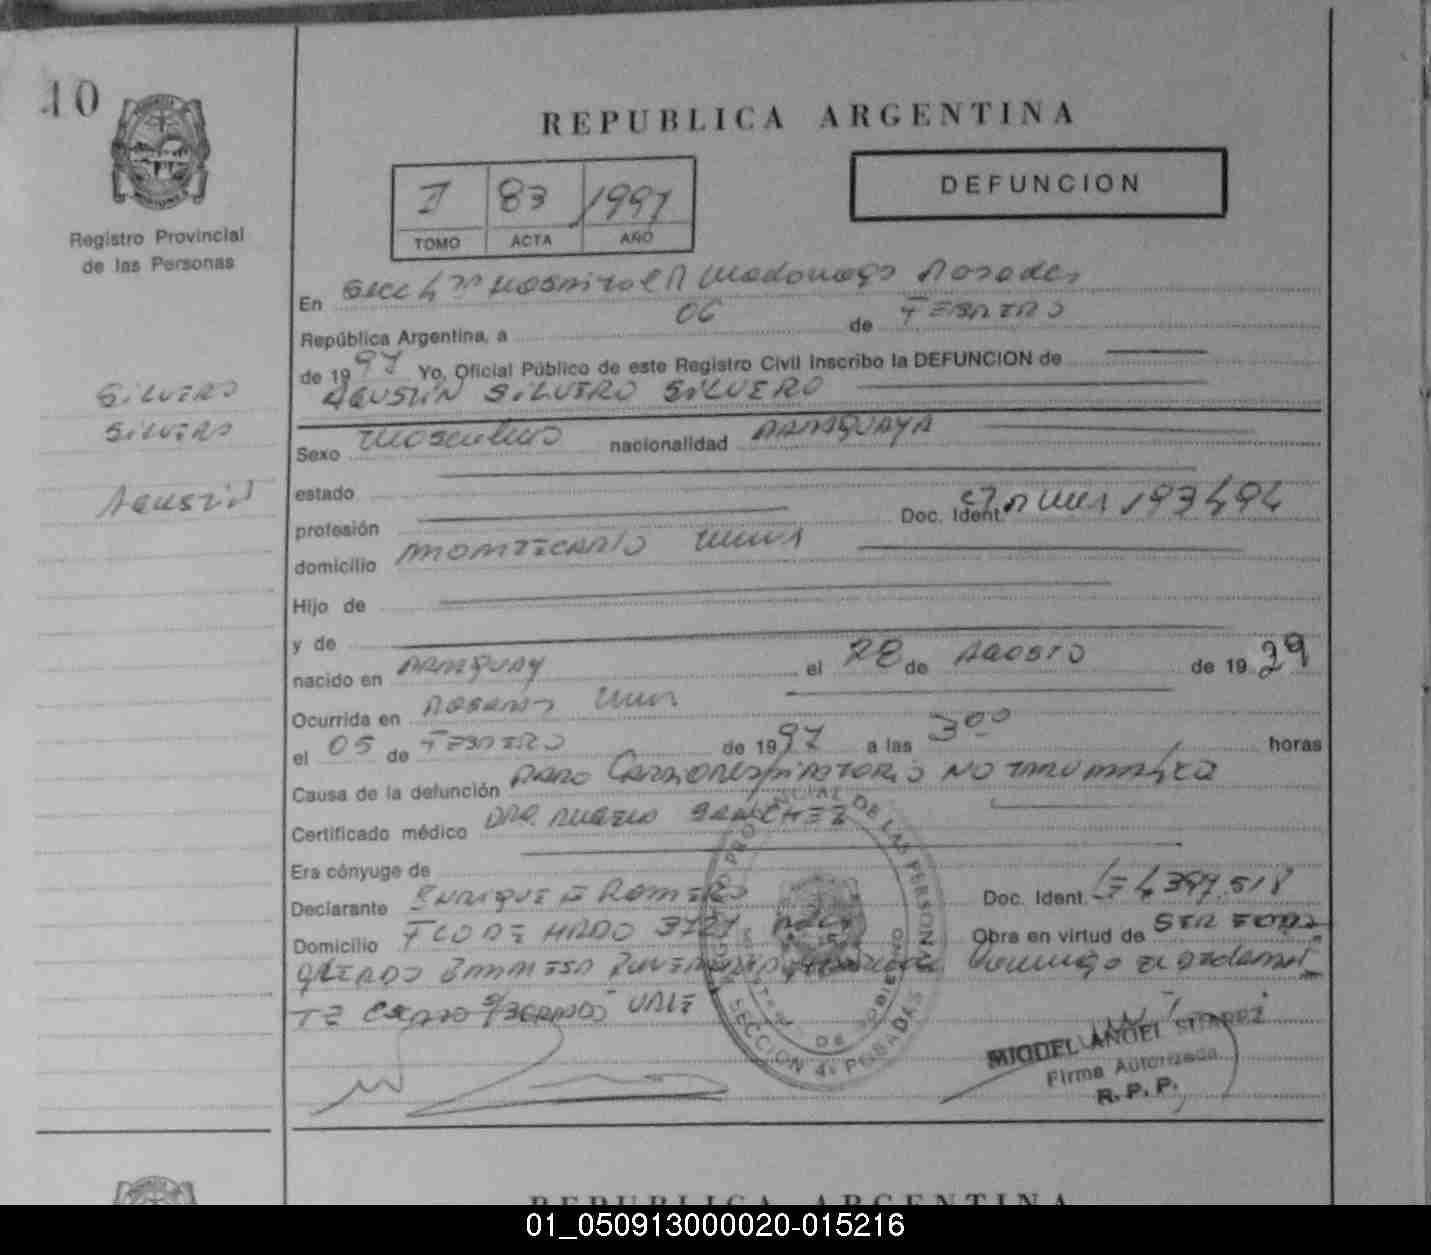 10
REPUBLICA ARGENTINA
I 83 1997
TOMO ACTA AÑO
DEFUNCION
Registro Provincial
de las Personas
SILVERO
SILVERO
AGUSTIN
En Secc 4ª Hospital R Madariaga Posadas
República Argentina, a 06 de FEBRERO
de 1997 Yo, Oficial Público de este Registro Civil Inscribo la DEFUNCION de
AGUSTIN SILVERO SILVERO
Sexo Masculino nacionalidad PARAGUAYA
estado
profesión Doc. Ident. 193494
domicilio MONTECARLO
Hijo de
y de
nacido en PARAGUAY el 28 de AGOSTO de 19 29
Ocurrida en POSADAS
el 05 de FEBRERO de 1997 a las 3 00 horas
Causa de la defunción PARO CARDIORESPIRATORIO NO TRAUMATICO
Certificado médico SANCHEZ
Era cónyuge de
Declarante ENRIQUE E ROMERO Doc. Ident. LE 4399.518
Domicilio 3721 Obra en virtud de SER
VALE
SECCION 4ª POSADAS
MIGUEL ANGEL SUAREZ
Firma Autorizada
R. P. P.
REPUBLICA ARGENTINA
01_050913000020-015216